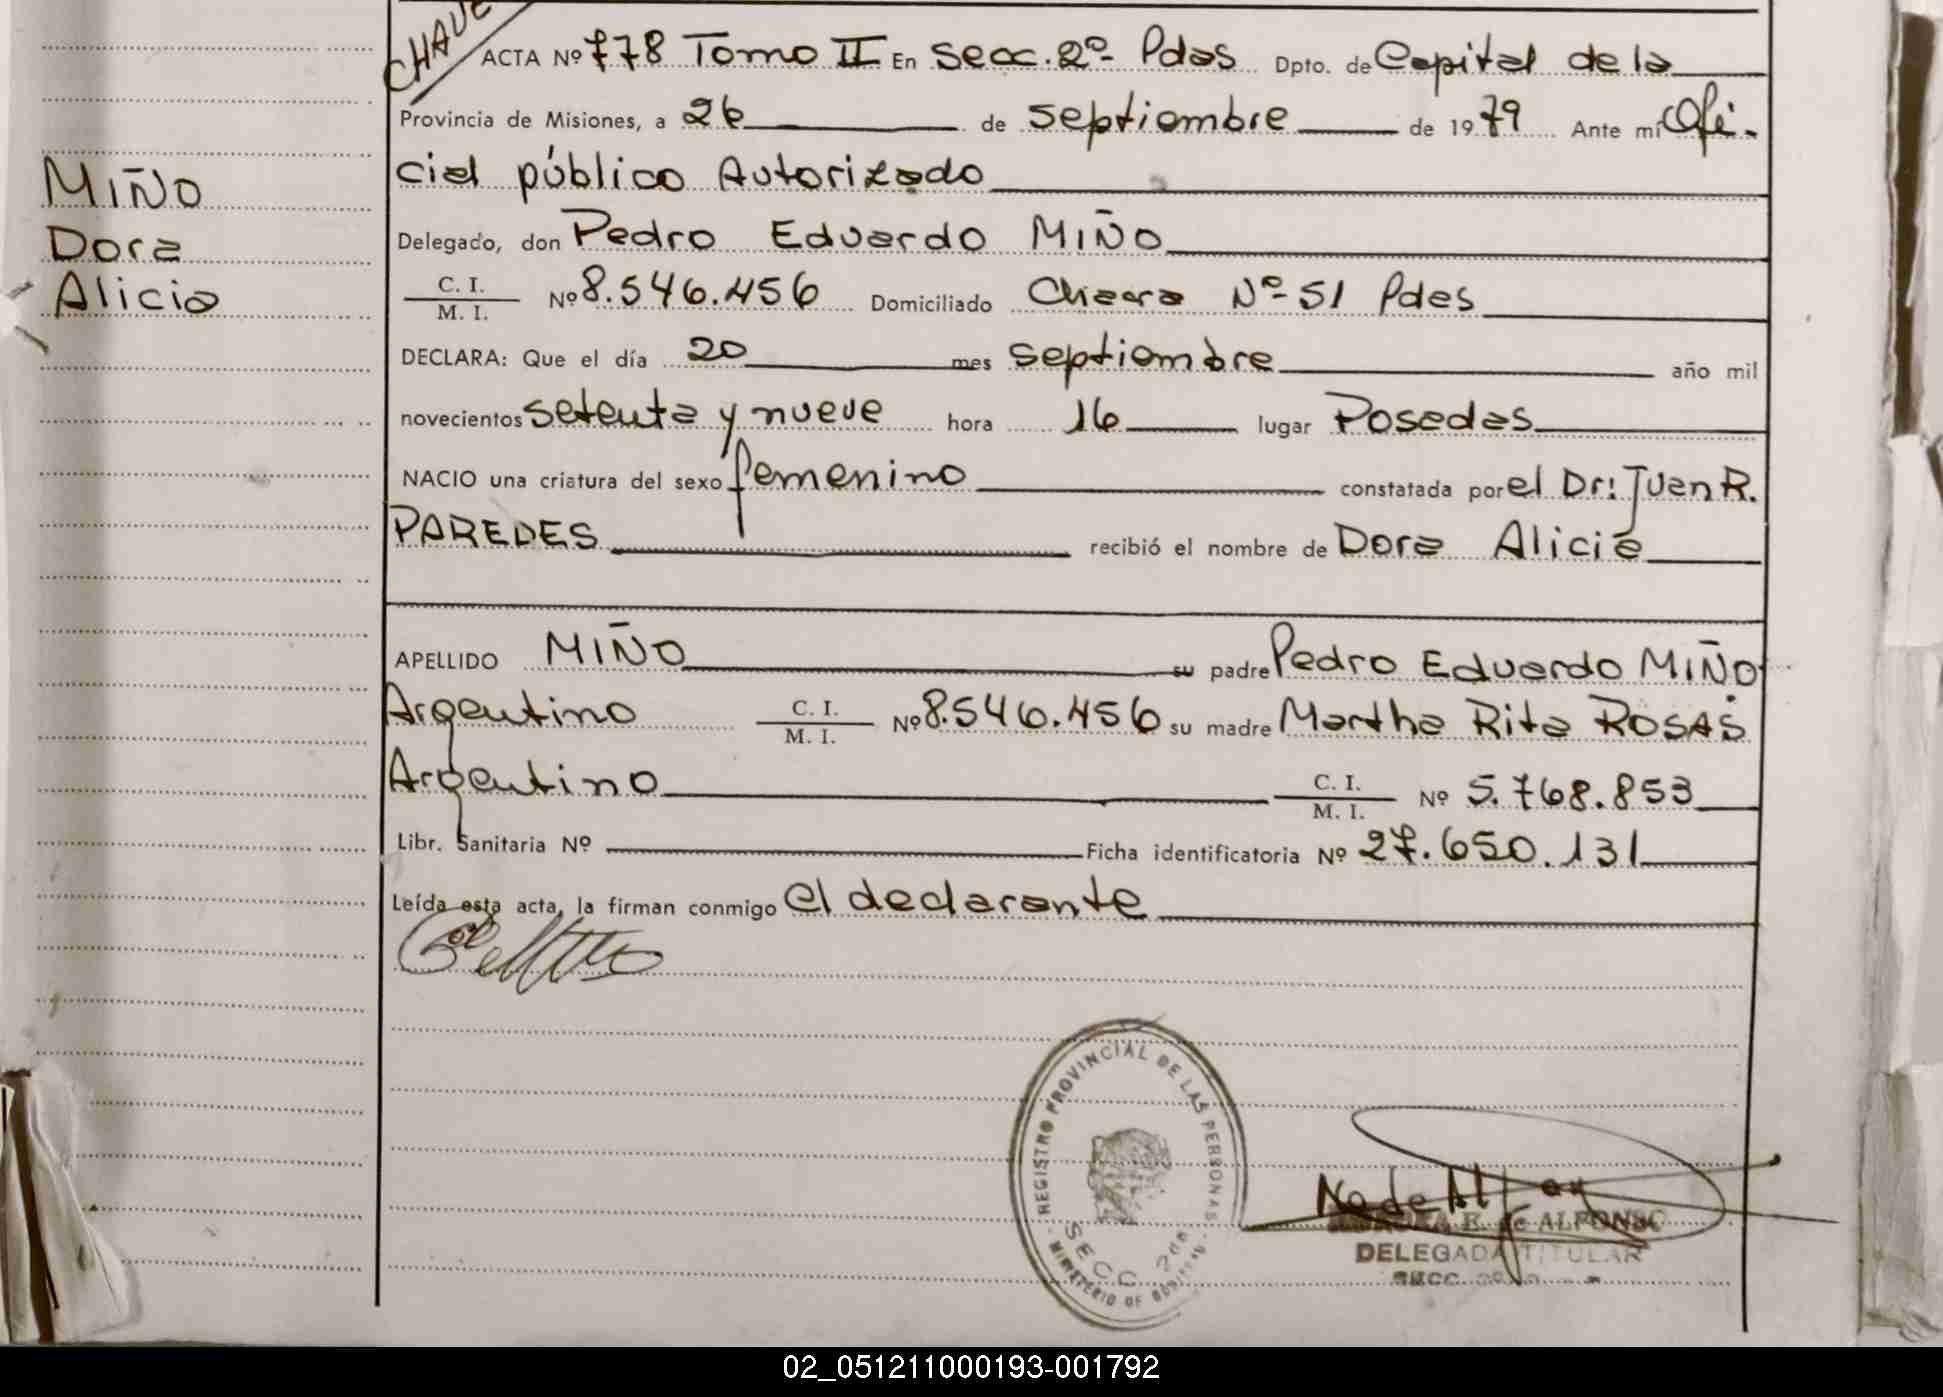 CHAVE
ACTA Nº 778 Tomo II En Secc. 2º Pdas Dpto. de Capital de la
Provincia de Misiones, a 26 de septiembre de 1979 Ante mi Ofi-
cial público Autorizado
MIÑO
Dora
Alicia
Delegado, don Pedro Eduardo MIÑO
C. I.
M. I.
Nº 8.546.456 Domiciliado Chacra Nº 51 Pdas
DECLARA: Que el día 20 mes septiembre año mil
novecientos setenta y nueve hora 16 lugar Posadas
NACIO una criatura del sexo femenino constatada por el Dr: Juan R.
PAREDES recibió el nombre de Dora Alicia
APELLIDO MIÑO su padre Pedro Eduardo MIÑO
Argentino C. I. M. I. Nº 8.546.456 su madre Martha Rita ROSAS
Argentino C. I. M. I. Nº 5.768.853
Libr. Sanitaria Nº Ficha identificatoria Nº 27.650.131
Leída esta acta, la firman conmigo el declarante
REGISTRO PROVINCIAL DE LAS PERSONAS
SECC 2da
MINISTERIO DE GOBIERNO
E. de ALFONSO
DELEGADA TITULAR
SECC.
02_051211000193-001792